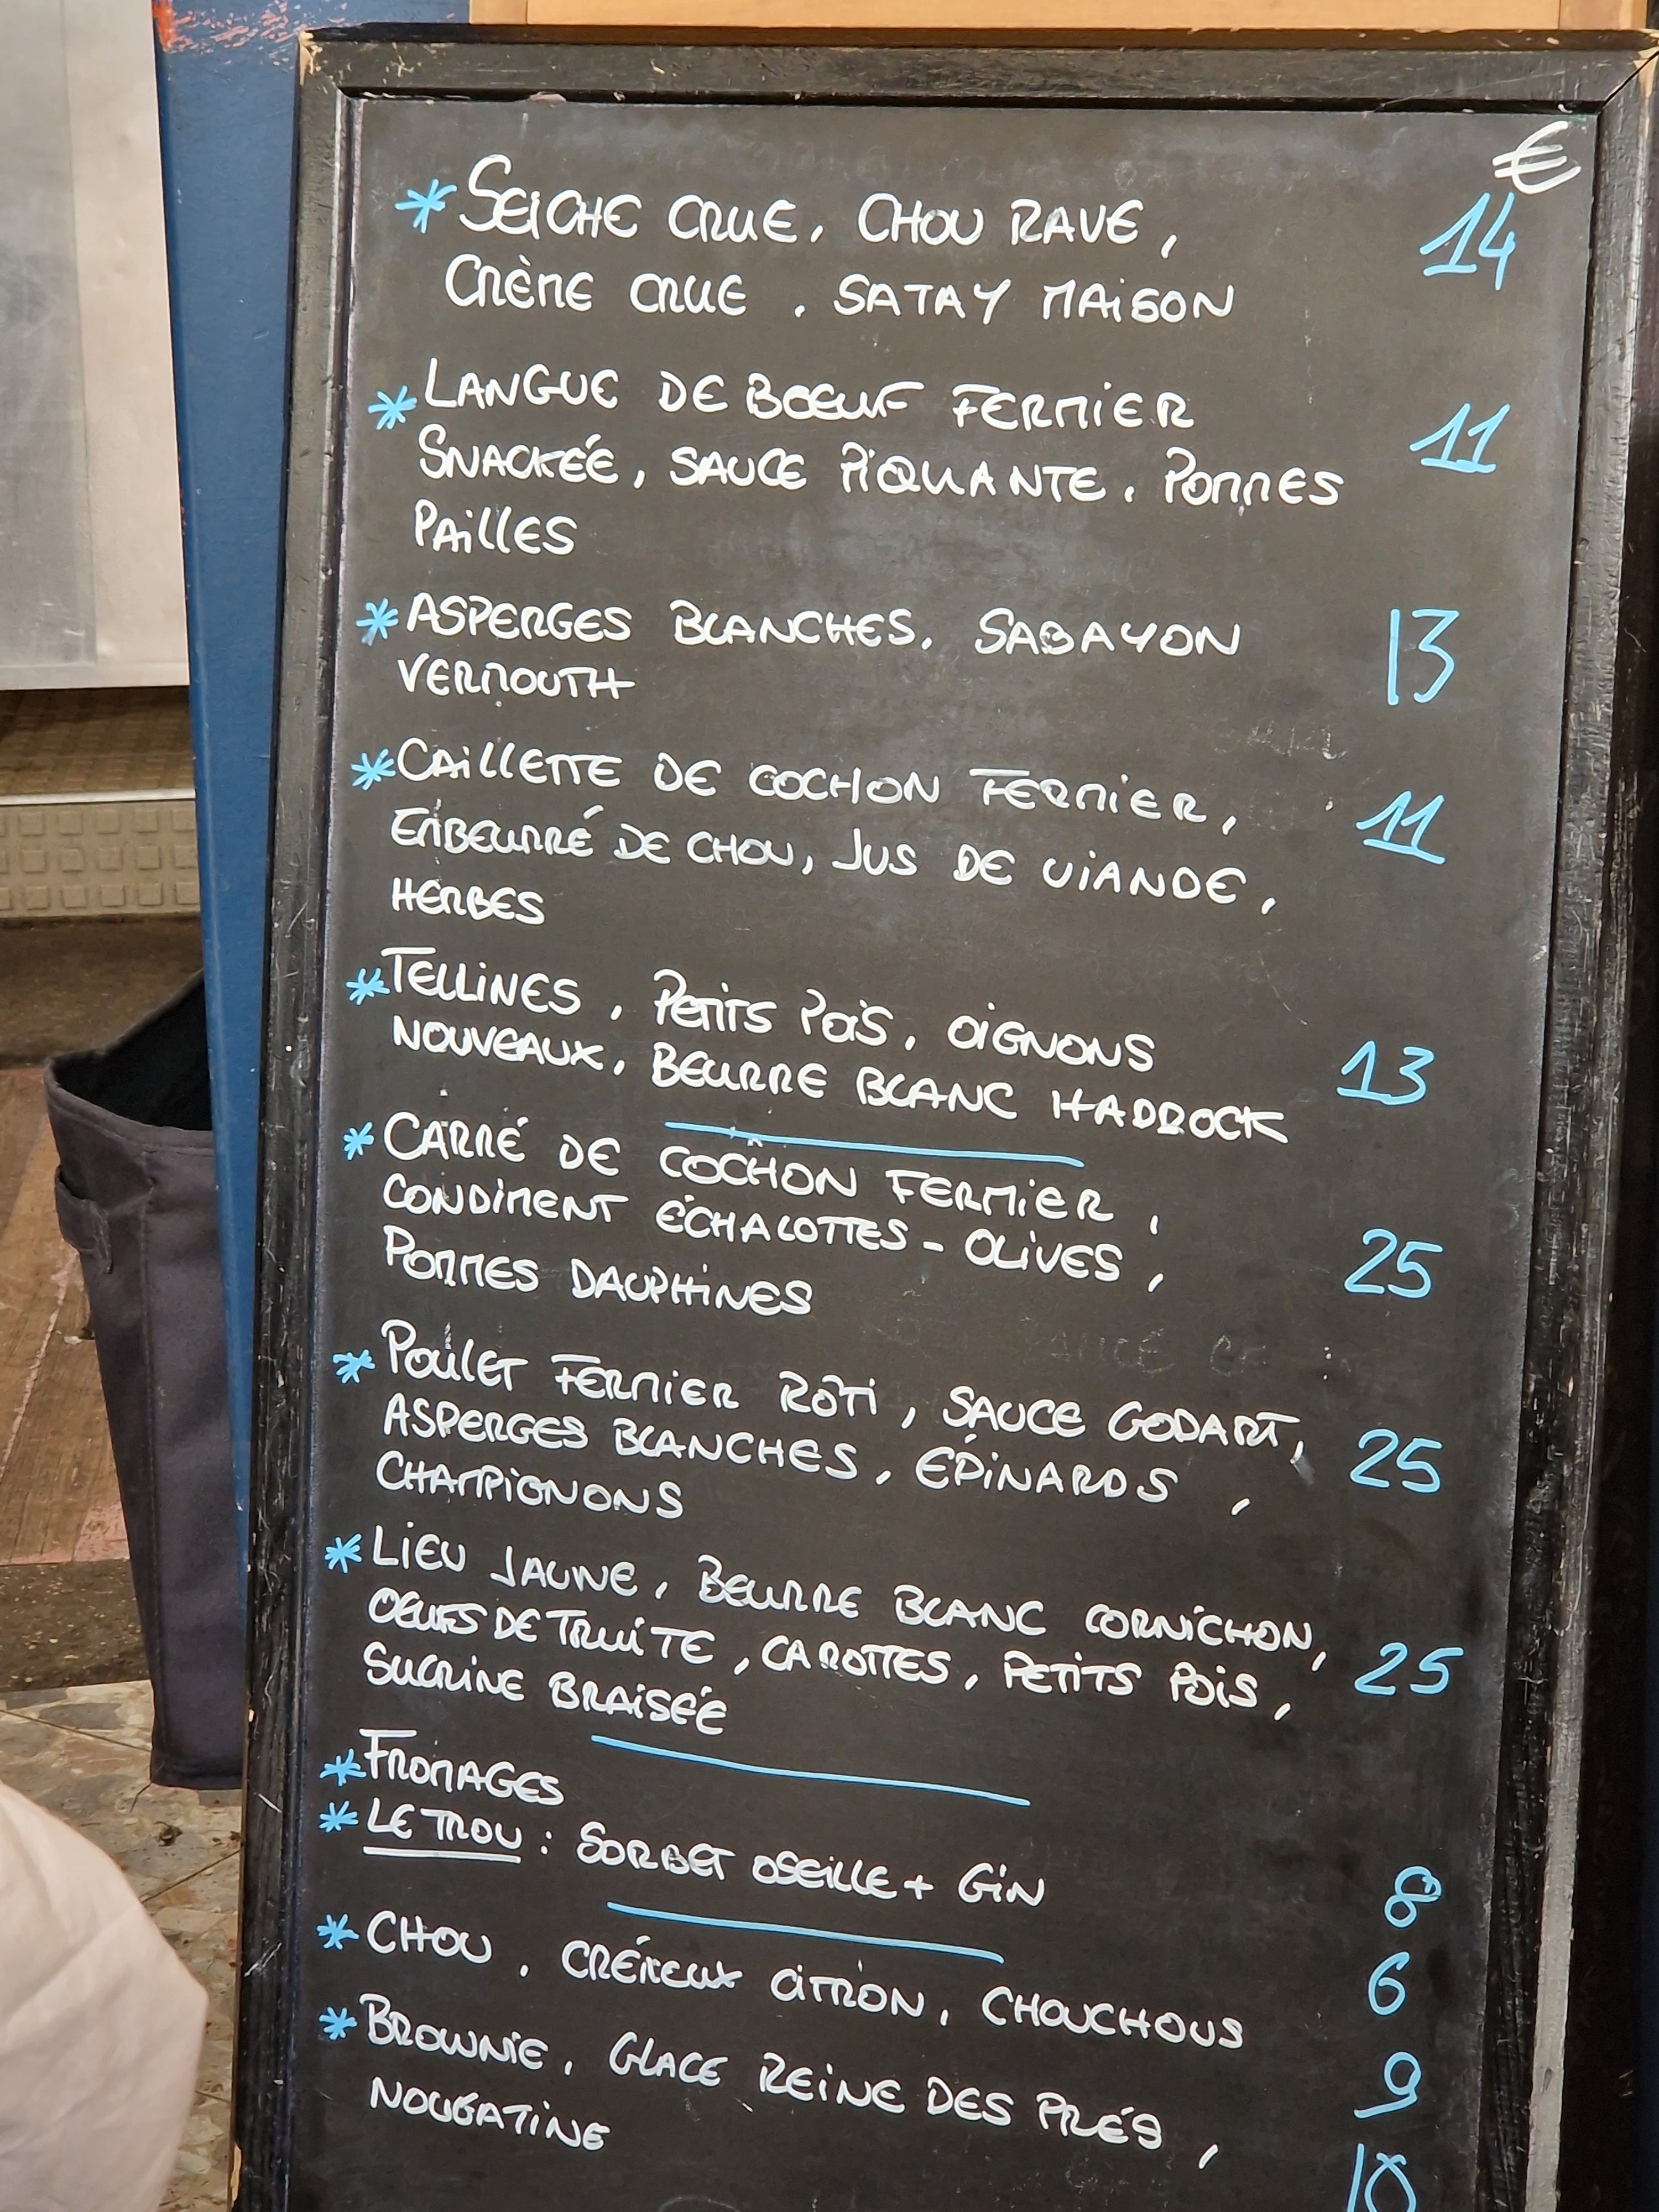 €
* SEICHE CRUE, CHOU RAVE, 14
CRÈME CRUE, SATAY MAISON
* LANGUE DE BŒUF FERMIER 11
SNACKÉE, SAUCE PIQUANTE, POMMES
PAILLES
* ASPERGES BLANCHES, SABAYON 13
VERMOUTH
* CAILLETTE DE COCHON FERMIER, 11
EMBEURRÉ DE CHOU, JUS DE VIANDE,
HERBES
* TELLINES, PETITS POIS, OIGNONS
NOUVEAUX, BEURRE BLANC HADDOCK 13
* CARRÉ DE COCHON FERMIER,
CONDIMENT ÉCHALOTTES - OLIVES, 25
POMMES DAUPHINES
* POULET FERMIER RÔTI, SAUCE GODART,
ASPERGES BLANCHES, ÉPINARDS, 25
CHAMPIGNONS
* LIEU JAUNE, BEURRE BLANC CORNICHON,
OEUFS DE TRUITE, CAROTTES, PETITS POIS, 25
SUCRINE BRAISÉE
* FROMAGES 8
* LE TROU : SORBET OSEILLE + GIN 6
* CHOU, CRÉMEUX CITRON, CHOUCHOUS 9
* BROWNIE, GLACE REINE DES PRÉS, 10
NOUGATINE